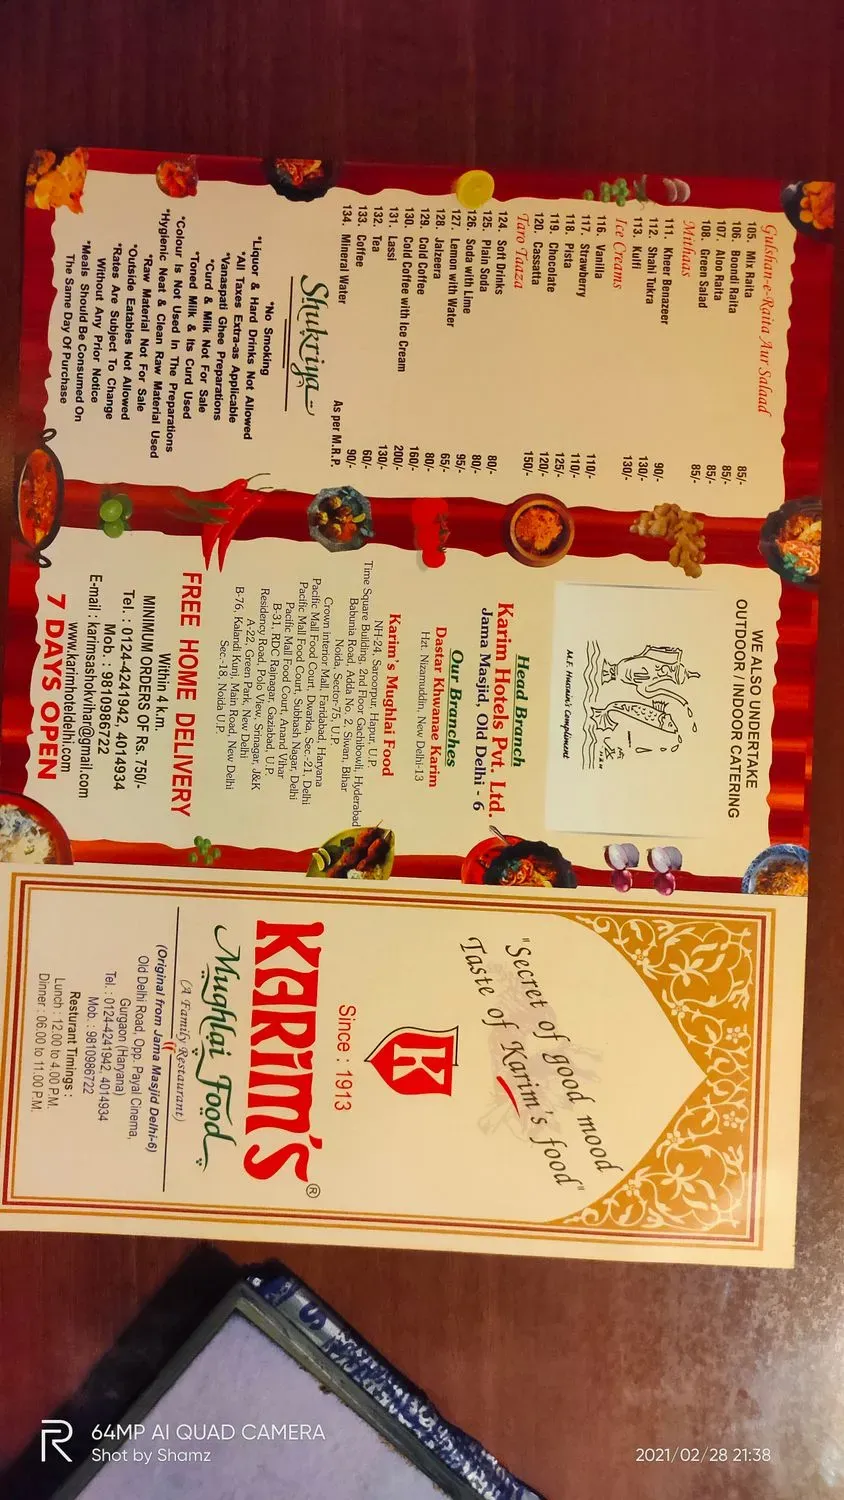 Gulshan-e-Raita Aur Salaad
105. Mix Raita 85/-
106. Boondi Raita 85/-
107. Aloo Raita 85/-
108. Green Salad 85/-
Mithaas
111. Kheer Benazeer 90/-
112. Shahi Tukra 130/-
113. Kulfi 130/-
Ice Creams
116. Vanilla 110/-
117. Strawberry 110/-
118. Pista 125/-
119. Chocolate 120/-
120. Cassatta 150/-
Taro Taaza
124. Soft Drinks 80/-
125. Plain Soda 80/-
126. Soda with Lime 95/-
127. Lemon with Water 65/-
128. Jalzeera 80/-
129. Cold Coffee 160/-
130. Cold Coffee with Ice Cream 200/-
131. Lassi 130/-
132. Tea 60/-
133. Coffee 90/-
134. Mineral Water As per M.R.P.
Shukriya
*No Smoking
*Liquor & Hard Drinks Not Allowed
*All Taxes Extra-as Applicable
*Vanaspati Ghee Preparations
*Curd & Milk Not For Sale
*Toned Milk & Its Curd Used
*Colour Is Not Used In The Preparations
*Hygienic Neat & Clean Raw Material Used
*Raw Material Not For Sale
*Outside Eatables Not Allowed
*Rates Are Subject To Change
Without Any Prior Notice
*Meals Should Be Consumed On
The Same Day Of Purchase
WE ALSO UNDERTAKE
OUTDOOR / INDOOR CATERING
M.F. Hussain's Compliment
Head Branch
Karim Hotels Pvt. Ltd.
Jama Masjid, Old Delhi - 6
Our Branches
Dastar Khwanae Karim
Hzt. Nizamuddin, New Delhi-13
Karim's Mughlai Food
NH-24, Saroorpur, Hapur, U.P.
Time Square Building, 2nd Floor Gachibowli, Hyderabad
Babunia Road, Adda No. 2, Siwan, Bihar
Noida, Sector-75, U.P.
Crown Interior Mall, Faridabad, Haryana
Pacific Mall Food Court, Dwarka, Sec.-21, Delhi
Pacific Mall Food Court, Subhash Nagar, Delhi
Pacific Mall Food Court, Anand Vihar
B-31, RDC Rajnagar, Gaziabad, U.P.
Residency Road, Polo View, Srinagar, J&K
A-22, Green Park, New Delhi
B-76, Kalandi Kunj, Main Road, New Delhi
Sec.-18, Noida U.P.
FREE HOME DELIVERY
Within 4 k.m.
MINIMUM ORDERS OF Rs. 750/-
Tel. : 0124-4241942, 4014934
Mob. : 9810986722
E-mail : karimsashokvihar@gmail.com
www.karimhoteldelhi.com
7 DAYS OPEN
"Secret of good mood
Taste of Karim's food"
K
Since : 1913
KARIM'S®
Mughlai Food
(A Family Restaurant)
(Original from Jama Masjid Delhi-6)
Old Delhi Road, Opp. Payal Cinema,
Gurgaon (Haryana)
Tel. : 0124-4241942, 4014934
Mob. : 9810986722
Resturant Timings :
Lunch : 12:00 to 4.00 P.M.
Dinner : 06.00 to 11:00 P.M.
R
64MP AI QUAD CAMERA
Shot by Shamz
2021/02/28 21:38